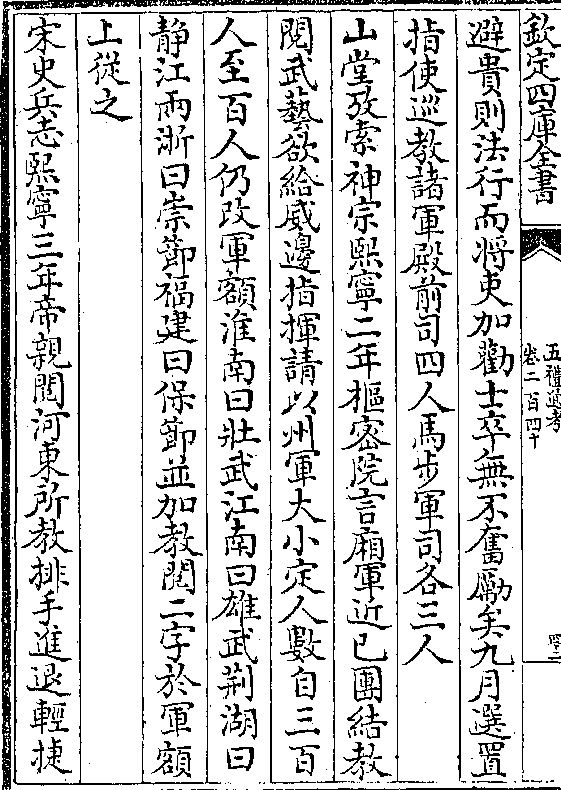 欽定四庫全書
五禮通考
卷二百四十
四十二
避貴則法行而將吏加勸士卒無不奮勵矣九月選置
指使巡教諸軍殿前司四人馬步軍司各三人
山堂攷索神宗熙寧二年樞密院言廂軍近已團結教
閱武藝欲給威邊指揮請以州軍大小定人數自三百
人至百人仍改軍額淮南曰壯武江南曰雄武荆湖曰
静江兩浙曰崇節福建曰保節並加教閱二字於軍額
上從之
宋史兵志熙寧三年帝親閱河東所教排手進退輕捷